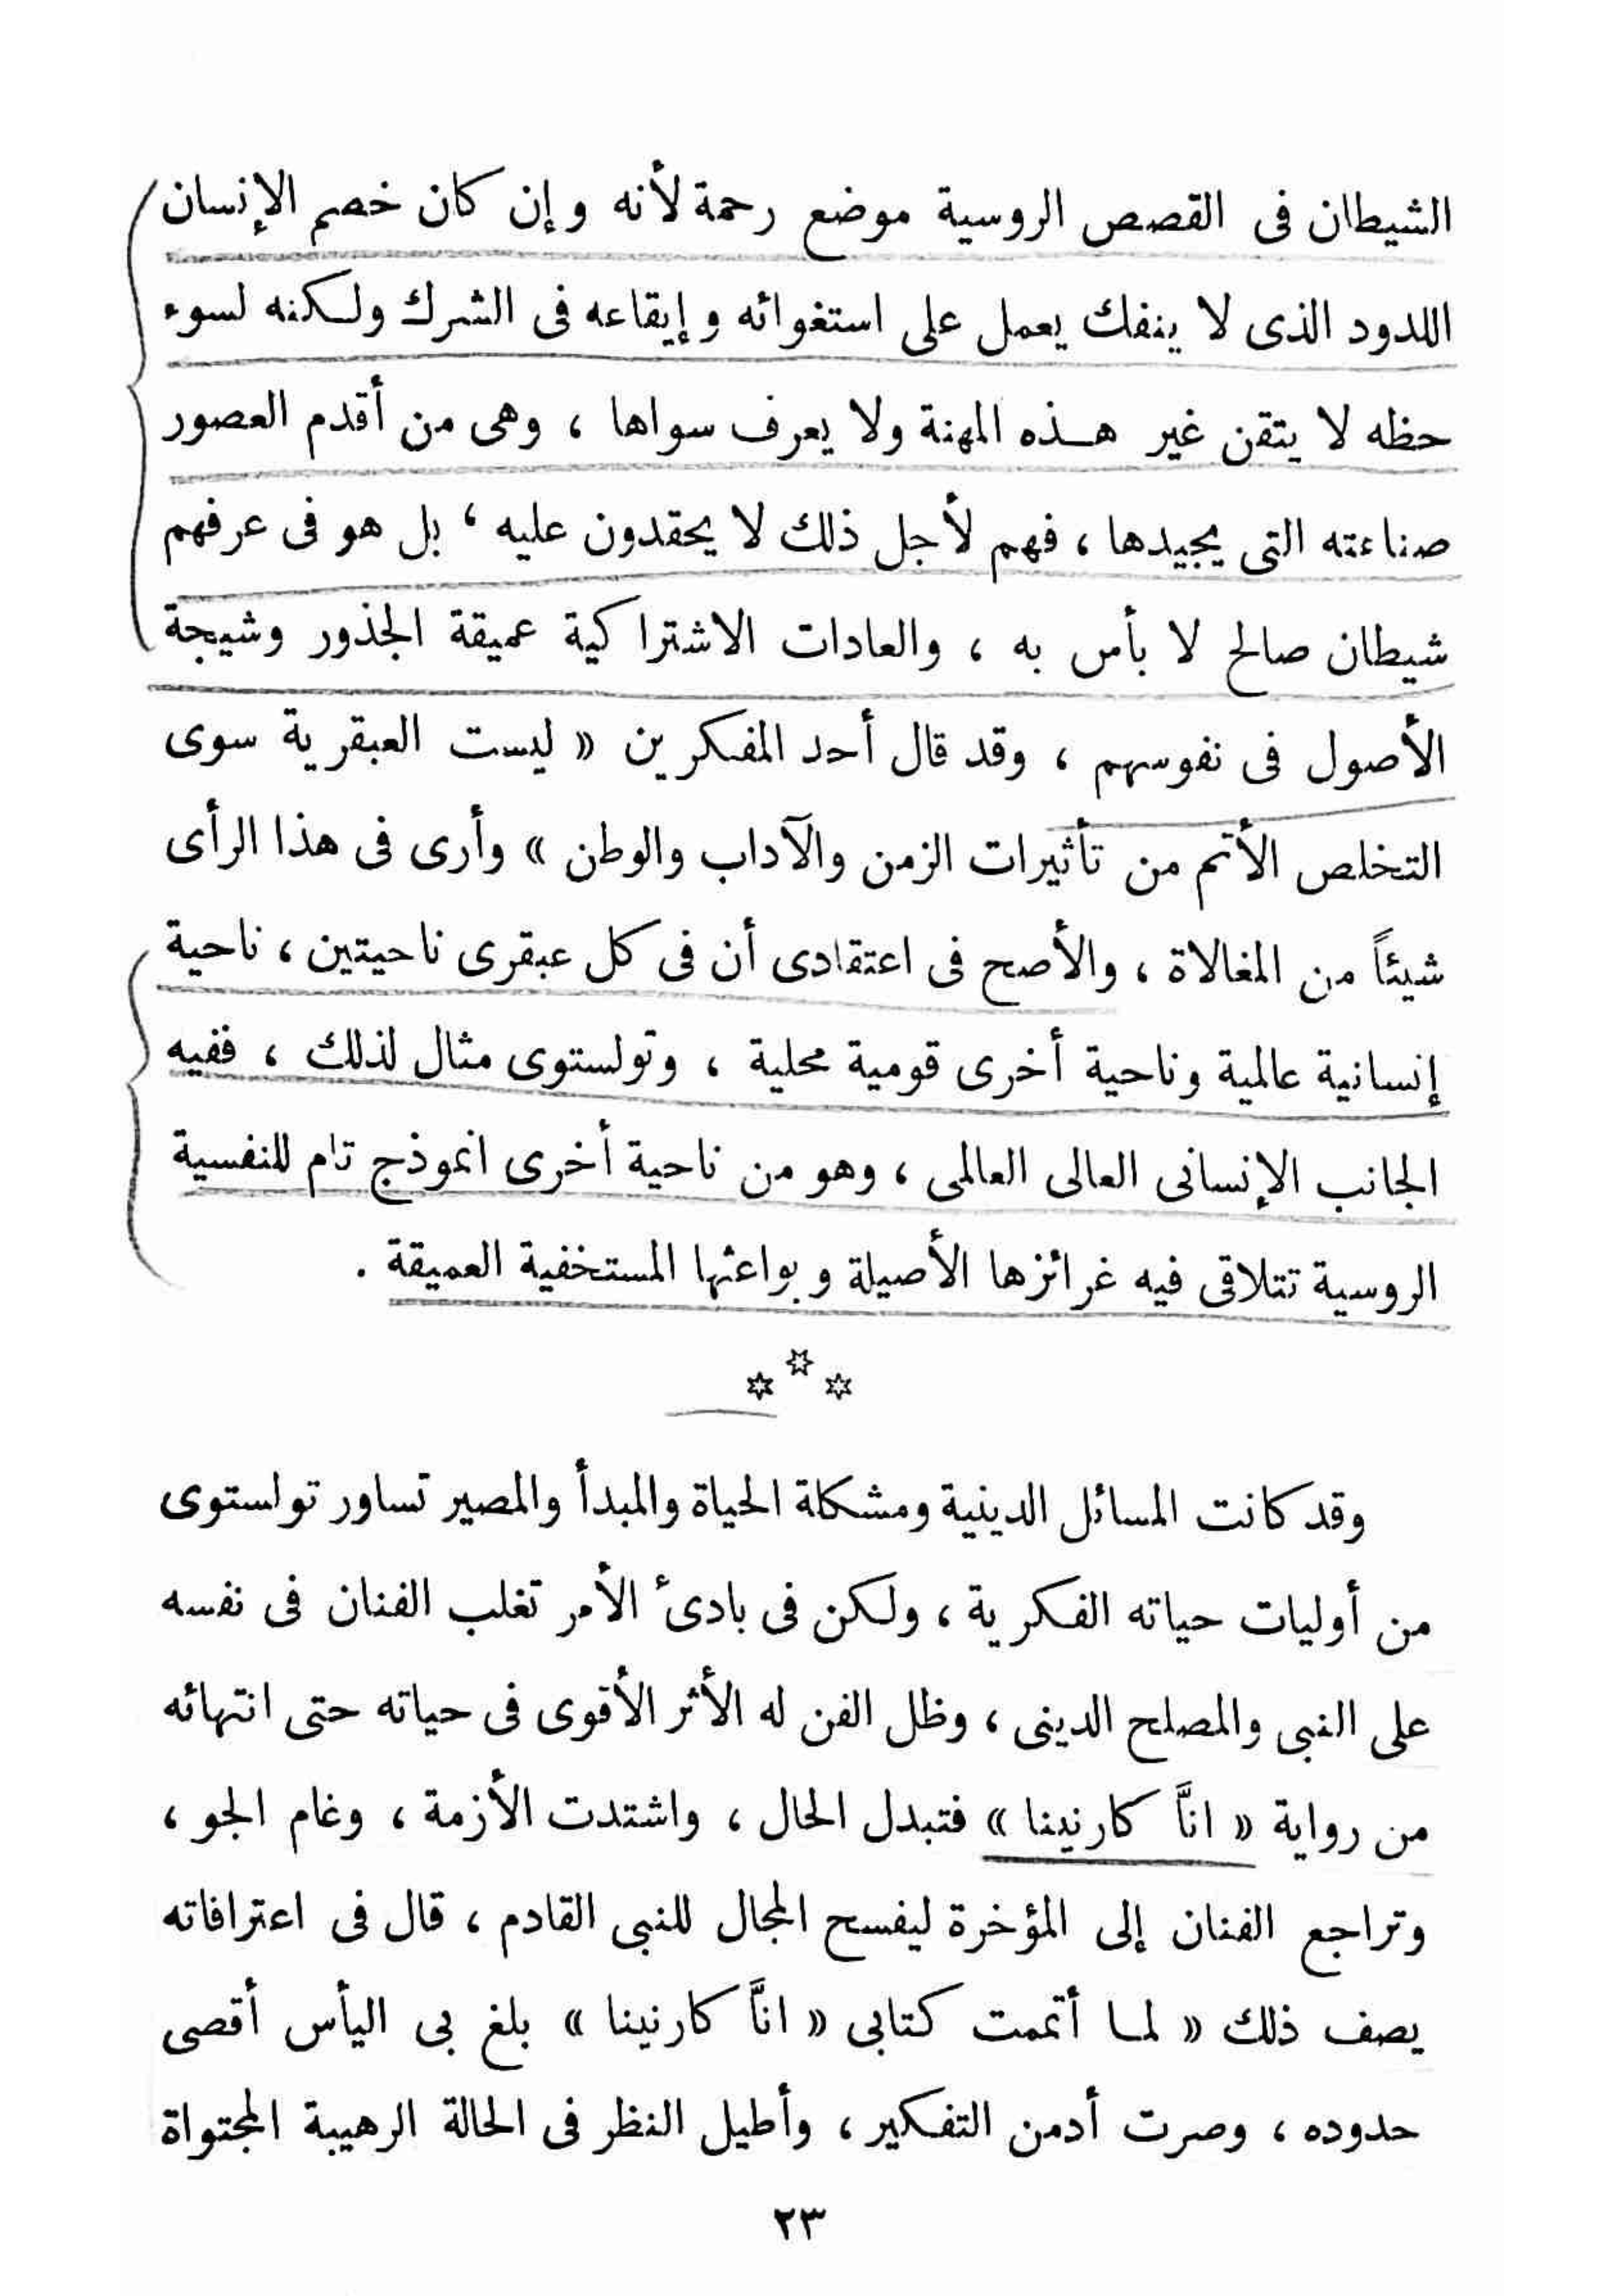 الشيطان فى القصص الروسية موضع رحمة لأنه وإن كان خصم الإنسان
اللدود الذى لا ينفك يعمل على استغوائه وإيقاعه فى الشرك ولكنه لسوء
حظه لا يتقن غير هذه المهنة ولا يعرف سواها ، وهى من أقدم العصور
صناعته التى يجيدها ، فهم لأجل ذلك لا يحقدون عليه ، بل هو فى عرفهم
شيطان صالح لا بأس به ، والعادات الاشتراكية عميقة الجذور وشيجة
الأصول فى نفوسهم ، وقد قال أحد المفكرين « ليست العبقرية سوى
التخلص الأتم من تأثيرات الزمن والآداب والوطن » وأرى فى هذا الرأى
شيئاً من المغالاة ، والأصح فى اعتقادى أن فى كل عبقرى ناحيتين ، ناحية
إنسانية عالمية وناحية أخرى قومية محلية ، وتولستوى مثال لذلك ، ففيه
الجانب الإنسانى العالى العالمى ، وهو من ناحية أخرى انموذج تام للنفسية
الروسية تتلاقى فيه غرائزها الأصيلة وبواعثها المستخفية العميقة .
وقد كانت المسائل الدينية ومشكلة الحياة والمبدأ والمصير تساور تولستوى
من أوليات حياته الفكرية ، ولكن فى بادئ الأمر تغلب الفنان فى نفسه
على النبى والمصلح الدينى ، وظل الفن له الأثر الأقوى فى حياته حتى انتهائه
من رواية « انَّا كارنينا » فتبدل الحال ، واشتدت الأزمة ، وغام الجو ،
وتراجع الفنان إلى المؤخرة ليفسح المجال للنبى القادم ، قال فى اعترافاته
يصف ذلك « لما أتممت كتابى « انَّا كارنينا » بلغ بى اليأس أقصى
حدوده ، وصرت أدمن التفكير ، وأطيل النظر فى الحالة الرهيبة المجتواة
٢٣